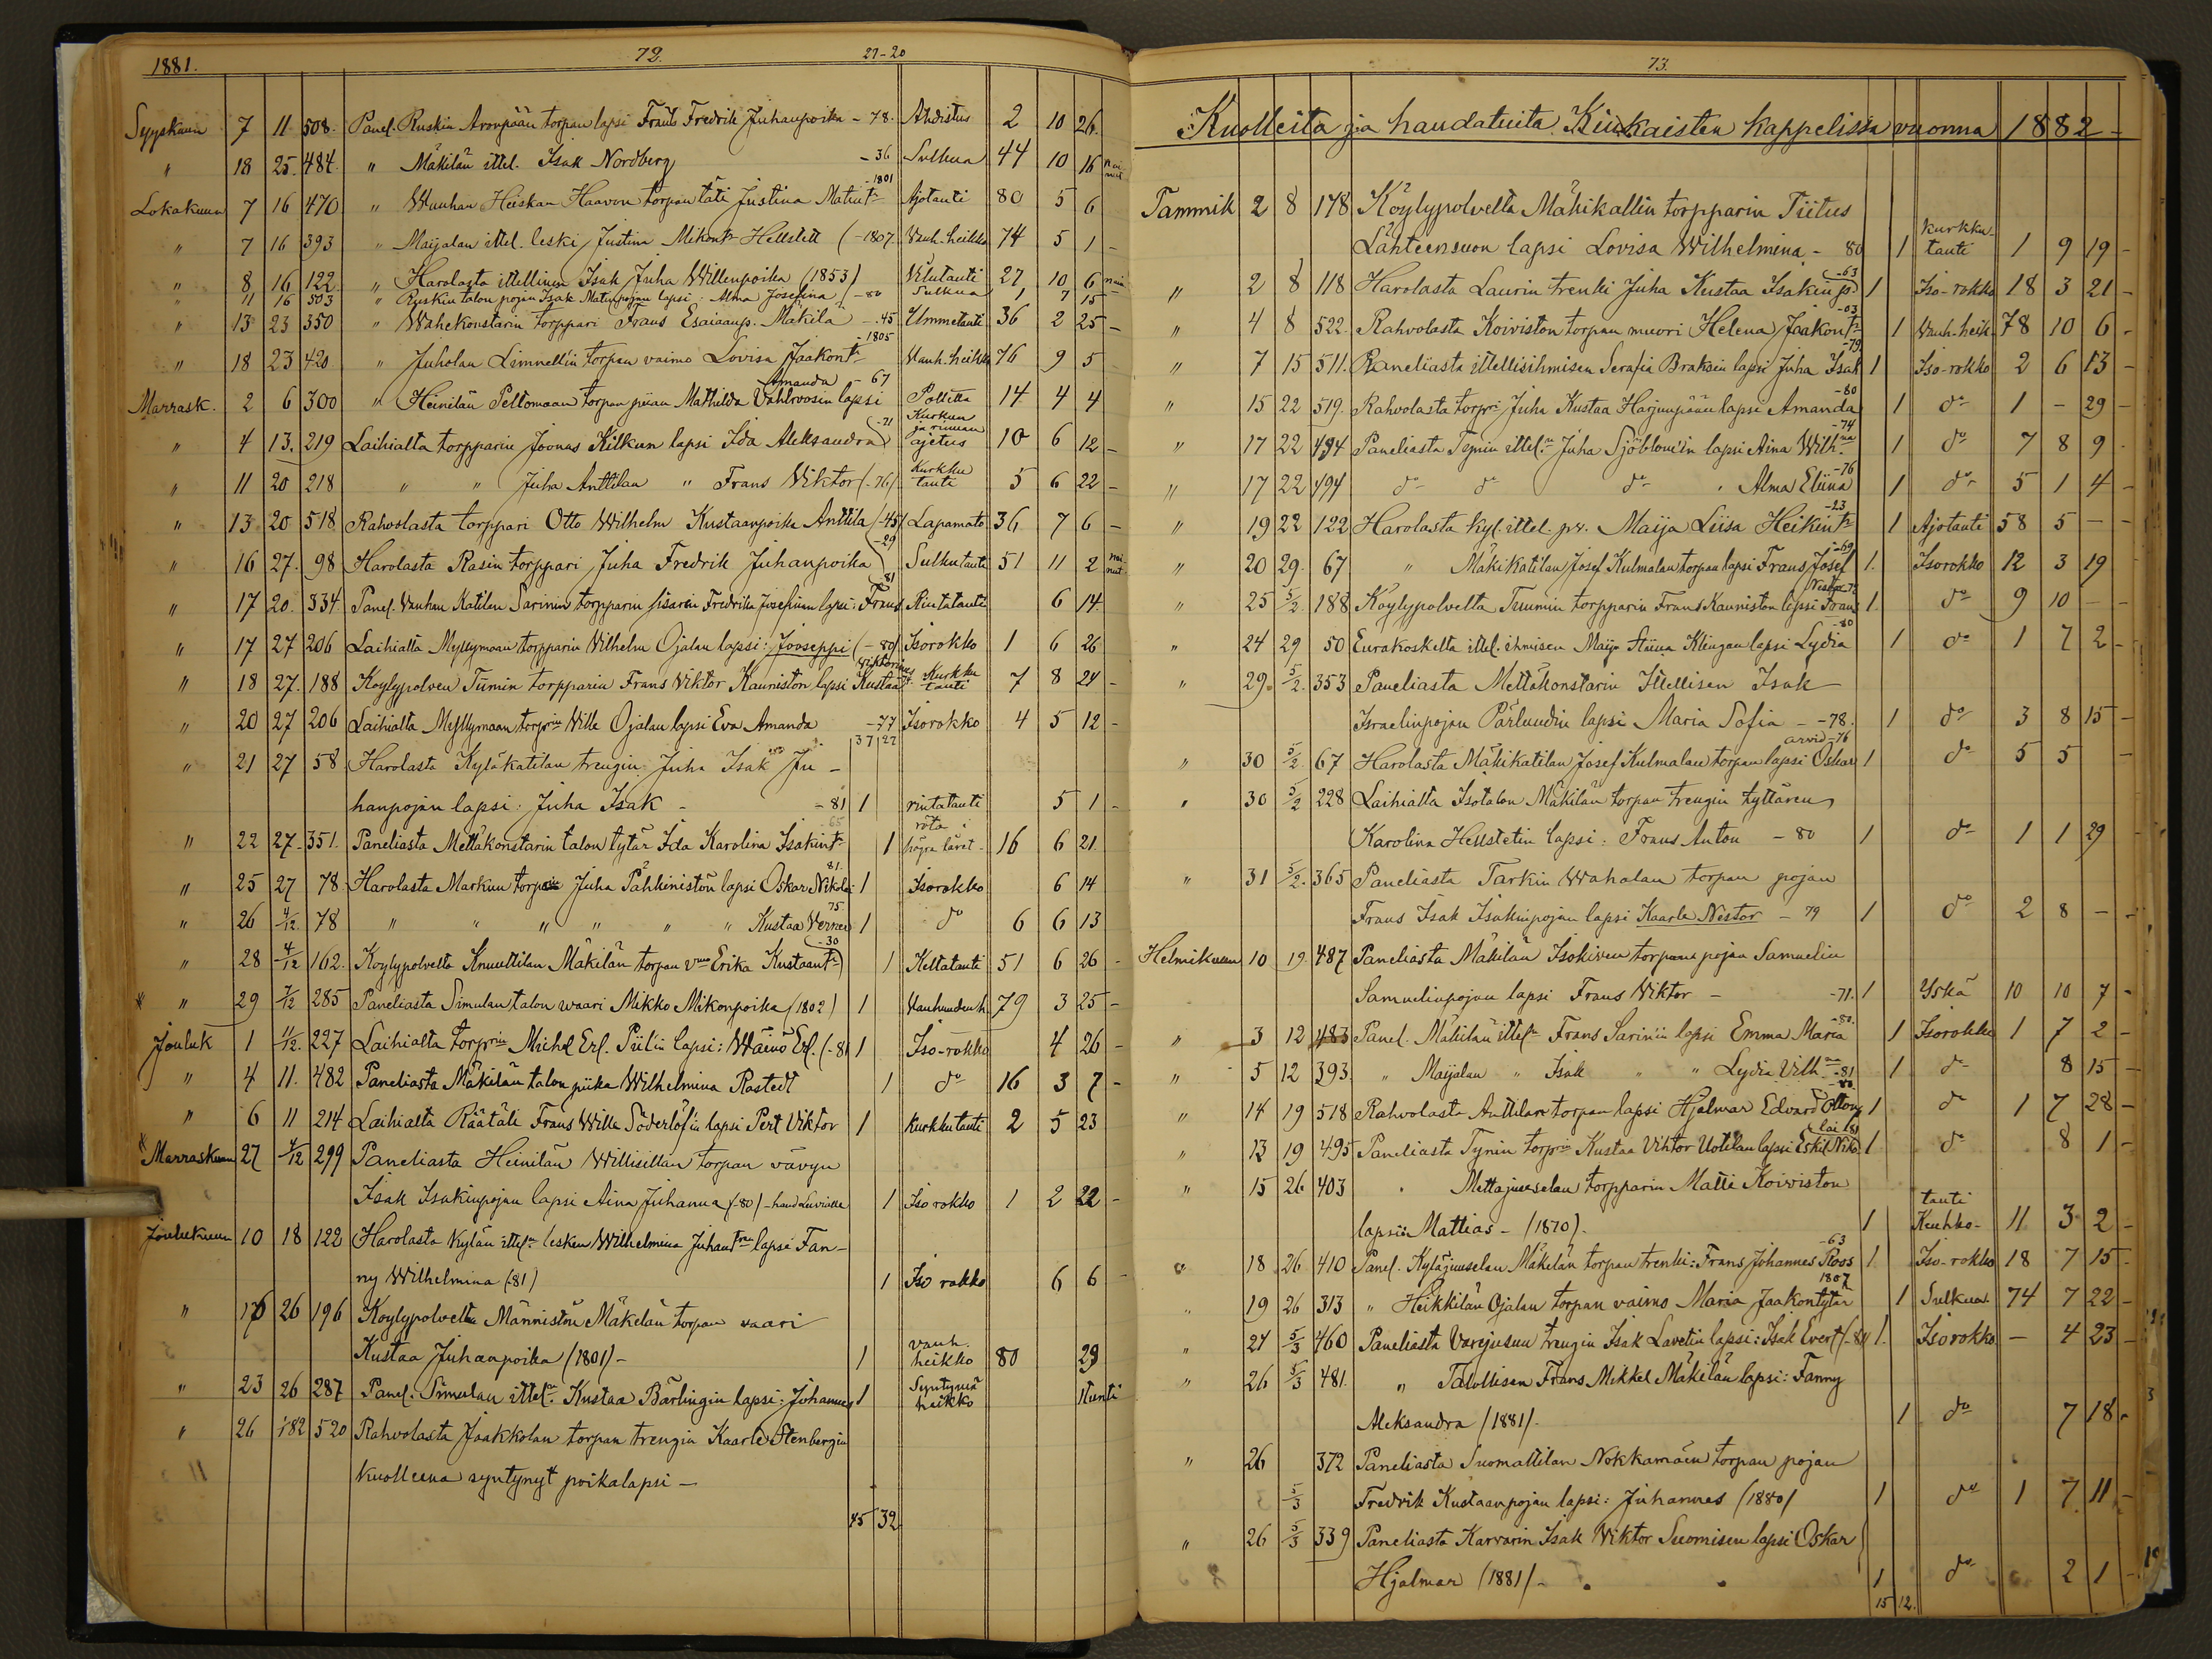 1881. 72. 27-20
Syyskuun 7 11 508. Panel. Ruskin Aronpään torpan lapsi Frans Fredrik Juhanpoika - 78. Ahdistus 2 10 26.
" 18 25. 484. " Mäkilän ittel. Isak Nordberg - 36 Sulkua 44 10 16
Lokakuun 7 16 470 " Wanhan Heiskan Haavon torpan täti Justina Matint. - 1801 Ajotauti 80 5 6
" 7 16 393 " Maijalan ittel. leski Justina Mikont. Hellstett (-1807. Vanh. heikko 74 5 1 -
" 8 16 122 " Harolasta itellinen Isak Juha Willenpoika (1853) Vilutauti 27 10 6
" 11 16 503 " Ruskin talon pojan Isak Matinpojan lapsi: Alma Josefina - 80 Sulkua 1 7 15
" 13 23 350 " Wähekonstarin torppari Frans Esaiaanp. Mäkilä - 45 Ummetauti 36 2 25 -
" 18 23 420 " Juholan Limnellin torpan vaimo Lovisa Jaakont. - 1805 Vanh. heikko 76 9 5
Marrask. 2 6 300 " Heinilän Peltomaan torpan piian Mathilda Vahlroosin lapsi Amanda - 67 Polttta 14 4 4
" 4 13. 219 Laihialta torpparin Joonas Kilkun lapsi Ida Aleksandra - 71 Kurkun ja rinnan ajetus 10 6 12 -
" 11 20 218 " " Juha Anttilan " Frans Viktor (-76) Kurkku tauti 5 6 22 -
" 13 20 518 Rahvolasta torppari Otto Wilhelm Kustaanpoika Anttila (-45) Lapamato 36 7 6 -
" 16 27. 98 Harolasta Rasin torppari Juha Fredrik Juhanpoika - 29 Sulkutauti 51 11 2
" 17 20. 334. Panel. Vanhan Katilan Sarinin torpparin sisaren Fredrika Josefinan lapsi: Frans 81 Rintatauti 6 14.
" 17 27 206 Laihialta Myllymaan torpparin Vilhelm Ojalan lapsi: Jooseppi (-80) Isorokko 1 6 26
" 18 27. 188 Köylypolven Tuimin torpparin Frans Viktor Kauniston lapsi Kustaa Viktorinus Kurkku tauti 7 8 24 -
" 20 27 206 Laihialta Myllymaan torprin Wille Ojalan lapsi Eva Amanda - 77 Isorokko 4 5 12 -
37 27
" 21 27 58 Harolasta Kyläkatilan trengin Juha Isak Ju-
hanpojan lapsi: Juha Isak - - 81 1 rintatauti 5 1 -
" 22 27. 351. Paneliasta Mettäkonstarin talon tytär Ida Karolina Isakint. 65 1 röta i högra låret. 16 6 21.
" 25 27 78 Harolasta Markun torprin Juha Pähkinistön lapsi Oskar Nikolai 81. 1 Isorokko 6 14
" 26 4/12. 78 " " " " " " Kustaa Verner 75 1 do 6 6 13
" 28 4/12 162. Köylypolvelta Knuuttilan Mäkilän torpan vmo Erika Kustaant. - 30 1 Keltatauti 51 6 26 -
* " 29 4/12 285 Paneliasta Simulan talon waari Mikko Mikonpoika (1802) 1 Vanhuudenh. 79 3 25 -
Jouluk 1 11/12. 227 Laihialta torprin Michel Erl. Piilin lapsi: Wäinö Erl. (-81 1 Iso-rokko 4 26 -
" 4 11. 482 Paneliasta Mäkilän talon piika Wilhelmina Rostedt 1 do 16 3 7 -
" 6 11 214 Laihialta Räätäli Frans Wille Söderlöfin lapsi Pert Viktor 1 Kurkkutauti 2 5 23
* Marraskuun 27 4/12 299 Paneliasta Heinilän Willisillan torpan vävyn
Isak Isakinpojan lapsi Aina Juhanna (-80) - 1 Iso rokko 1 2 22 -
Joulukuun 10 18 122 Harolasta Kylän ittel. lesken Wilhelmina Juhant. lapsi Fan-
ny Wilhelmina (81) 1 Iso rokko 6 6 -
" 16 26 196 Köylypolvelta Männistön Mäkelän torpan vaari
Kustaa Juhanpoika (1801) - 1 vanh. heikko 80 29
" 23 26 287 Panel. Simulan ittel. Kustaa Bärlingin lapsi: Johannes 1 Syntymä heikko 1 tunti
" 26 1 82 520 Rahvolasta Jaakkolan torpan trengin Kaarle Stenbergin
Kuolleena syntynyt poikalapsi -
45 32
73.
Kuolleita ja haudatuita Kiukaisten kappelissa vuonna 1882 -
Tammik 2 8 178 Köylypolvelta Mäkikallin torpparin Tiitus
Lähteensuon lapsi Lovisa Wilhelmina - 80 1 kurkku-tauti 1 9 19 -
" 2 8 118 Harolasta Laurin trenki Juha Kustaa Isakinp. - 63 1 Iso-rokko 18 3 21 -
" 4 8 522. Rahvolasta Koiviston torpan muori Helena Jaakont. - 03 1 Vanh-heik. 78 10 6 -
" 7 15 511. Paneliasta itellisihmisen Serafia Braksin lapsi Juha Isak - 79 1 Iso-rokko 2 6 13 -
" 15 22 519. Rahvolasta torpri Juha Kustaa Harjunpään lapsi Amanda - 80 1 do 1 - 29 -
" 17 22 494 Paneliasta Tynin ittel. Juha Sjöblomin lapsi Aina Wilh.na - 74 1 do 7 8 9 -
" 17 22 494 do do do " Alma Eliina - 76 1 do 5 1 4 -
" 19 22 122 Harolasta Kyl. ittel. Maija Liisa Heikint. - 23 1 Ajotauti 58 5 - -
" 20 29. 67 " Mäkikatilan Josef Kulmalan torpan lapsi Frans Josef - 69 1. Isorokko 12 3 19 -
" 25 5/2. 188 Köylypolvelta Tuumin torpparin Frans Kauniston lapsi Frans 1. do 9 10 - -
" 24 29 50 Eurakoskelta ittel. ihmisen Maija Stiina Klingan lapsi Lydia - 80 1 do 1 7 2 -
" 29. 5/2. 353 Paneliasta Mettäkonstarin Itellisen Isak
Israelinpojan Pärlundin lapsi Maria Sofia - - 78. 1 do 3 8 15 -
" 30 5/2. 67 Harolasta Mäkikatilan Josef Kulmalan torpan lapsi Oskar arvid - 76 1 do 5 5 -
" 30 5/2 228 Laihialta Isotalon Mäkilän torpan trengin tyttären
Karolina Hellstetin lapsi: Frans Anton - 80 1 do 1 1 29 -
" 31 5/2. 365 Paneliasta Tarkin Wahalan torpan pojan
Frans Isak Isakinpojan lapsi Kaarle Nestor - 79 1 do 2 8 - -
Helmikuun 10 19. 487 Paneliasta Mäkilän Isokiven torpan pojan Samuelin
Samuelinpojan lapsi Frans Viktor - - 71. 1 Yskä 10 10 7 -
" 3 12 483 Panel. Mäkilän ittel. Frans Sarinin lapsi Emma Maria - 80. 1 Isorokko 1 7 2 -
" 5 12 393. " Maijalan " Isak " " Lydia Vilh. - 81 1 do 8 15 -
" 14 19 518 Rahvolasta Anttilan torpan lapsi Hjalmar Edvard Otton - 80. 1 do 1 7 28 -
" 13 19 495 Paneliasta Tynin torprin Kustaa Viktor Uotilan lapsi Eskil Niko lai (81 1 do 8 1 -
" 15 26 403 " Mettäjuuselan torpparin Matti Koiviston
lapsi Mattias - (1870) - 1 Keuhko-tauti 11 3 2 -
" 18 26 410 Panel. Kyläjuuselan Mäkelän torpan trenki: Frans Johannes Roos - 63 1. Iso-rokko 18 7 15 -
" 19 26 313 " Heikkilän Ojalan torpan vaimo Maria Jaakontytär 1807 1 Sulkua. 74 7 22 -
" 21 5/3 460 Paneliasta Varejusuun trengin Isak Lavetin lapsi: Isak Evert (-81) 1. Isorokko - 4 23 -
" 26 5/3 481. " Talollisen Frans Mikkel Mäkilän lapsi: Fanny
Aleksandra (1881) - 1 do 7 18 -
" 26 372 Paneliasta Suomattilan Nokkamäen torpan pojan
5/3 Fredrik Kustaanpojan lapsi: Juhannes (1880) 1 do 1 7 11 -
" 26 5/3 339 Paneliasta Karvarin Isak Viktor Suomisen lapsi Oskar
Hjalmar (1881) - 1 do 2 1 -
15 12.